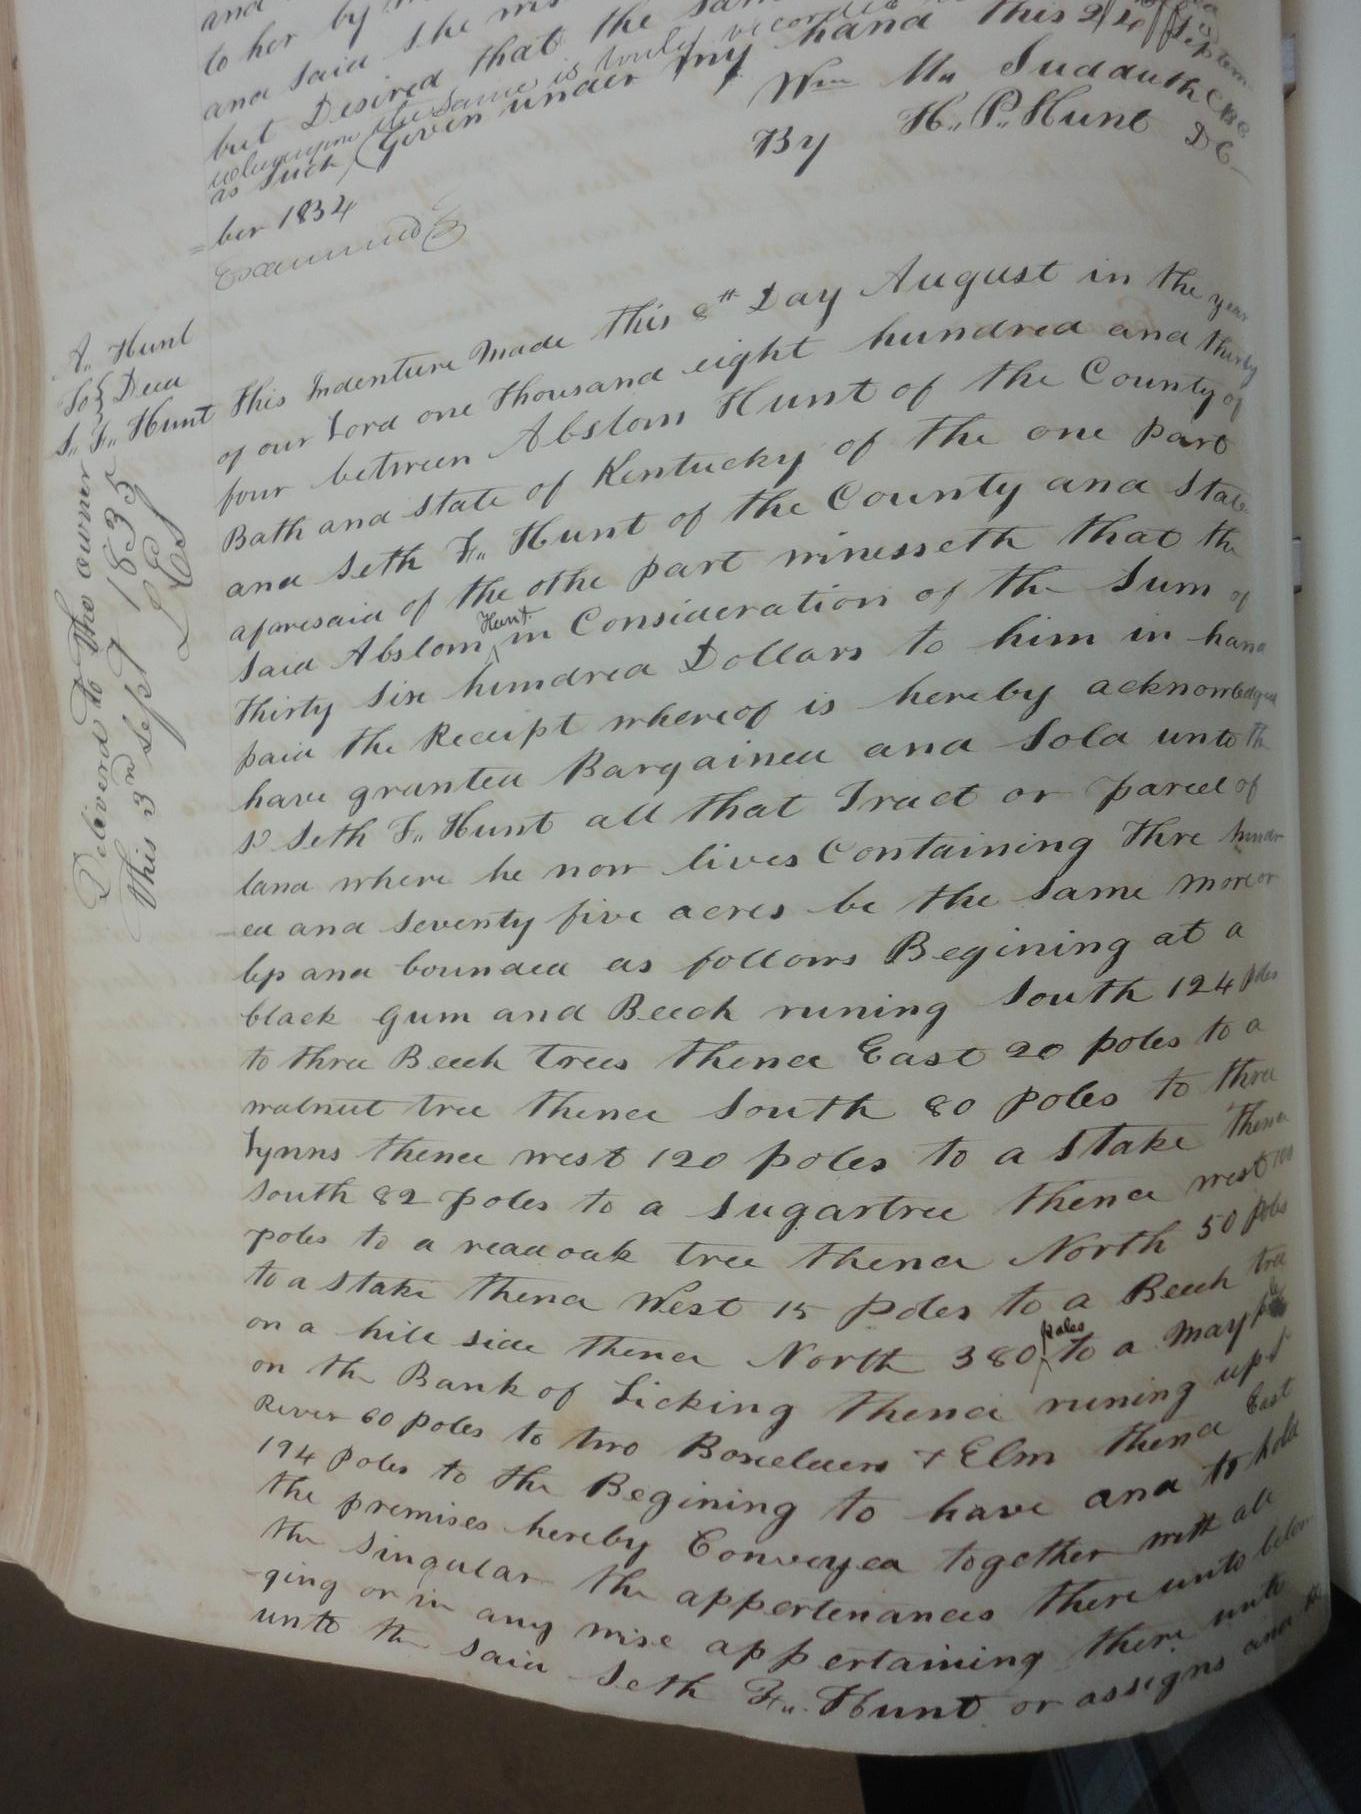 and
to her by
and said she
but Desired that the same
whereupon the same is truly recorded
as such, Given under my hand this 24 Septem
=ber 1834
Wm M. Sudduth CBC
By H. P. Hunt DC
Examined
A. Hunt
To } Deed
S. F. Hunt
Deliverd to The owner
This 3rd Sept 1835
This Indenture Made this 8th Day August in the year
of our Lord one Thousand eight hundred and thirty
four between Abslom Hunt of the County of
Bath and State of Kentucky of the one part
and Seth F. Hunt of the County and State
aforesaid of the othe part winesseth that the
Said Abslom Hunt in Consideration of the Sum of
Thirty Six hundred Dollars to him in hand
paid the Receipt whereof is hereby acknowledged
have granted Bargained and Sold unto th
sd Seth F. Hunt all that Tract or parcel of
land where he now lives Containing Thre hundr
ed and Seventy five acres be the same more or
less and bounded as follows Begining at a
black Gum and Beech runing South 124 poles
to three Beech trees thence East 20 poles to a
walnut tree thence South 80 poles to three
Lynns thence west 120 poles to a Stake thence
South 82 poles to a Sugartree thence west 100
poles to a read oak tree thence North 50 poles
to a Stake thence West 15 poles to a Beech tree
on a hill side thence North 380 poles to a May
on the Bank of Licking thence runing up sd
River 60 poles to two Boxelders & Elm thence East
194 poles to the Begining to have and to hold
the premises hereby Conveyed together with all
the Singular the appertenances there unto belon
ging or in any wise appertaining there unto
unto the said Seth F. Hunt or assigns and the